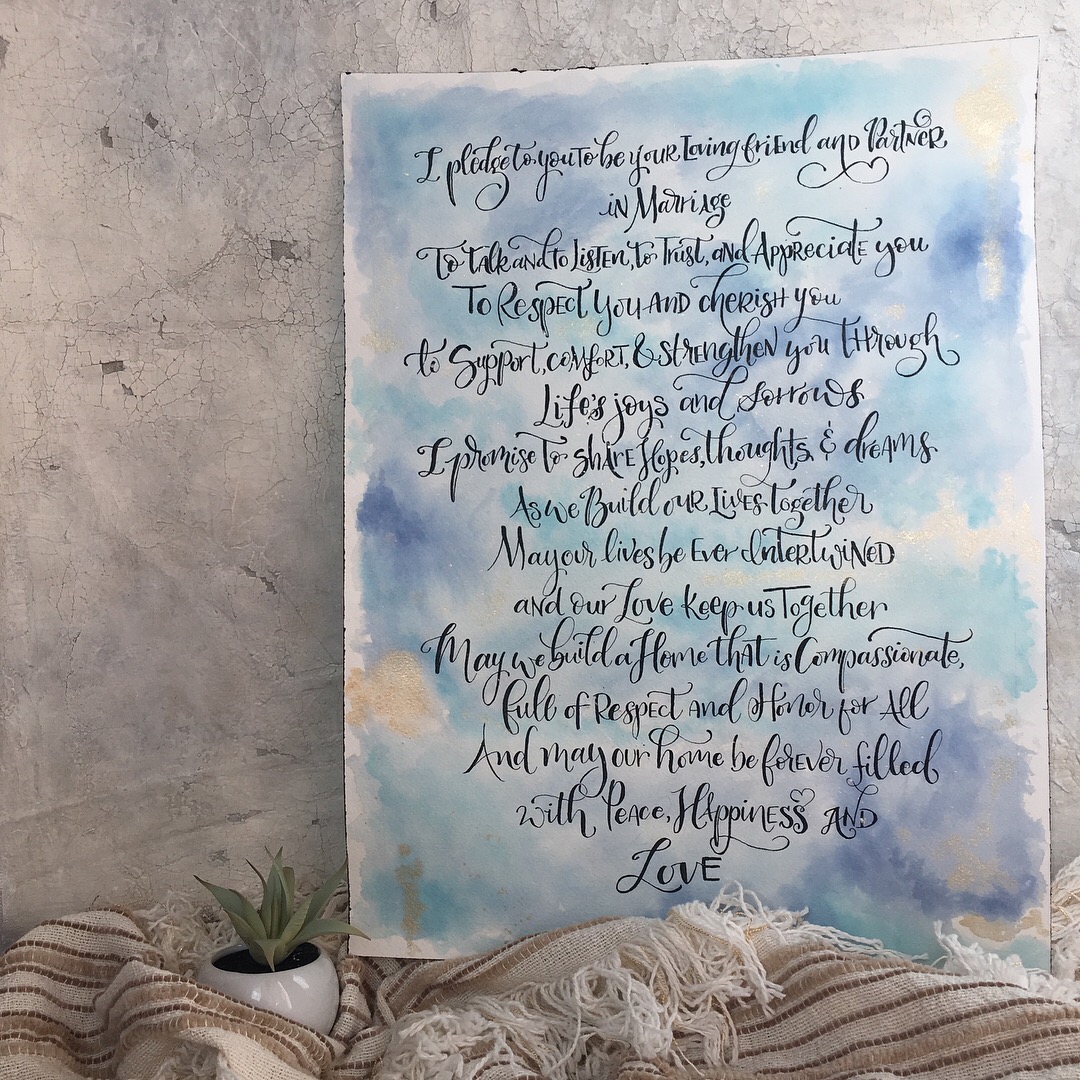 I pledge to you to be your Loving friend and Partner
in Marriage
To talk and to Listen, to Trust, and Appreciate you
To Respect You and cherish you
to Support, comfort, & strengthen you through
Life's joys and sorrows
I promise to share Hopes, thoughts, & dreams
As we Build our Lives together
May our lives be Ever Intertwined
and our Love keep us Together
May we build a Home that is Compassionate,
full of Respect and Honor for All
And may our home be forever filled
with Peace, Happiness and
Love